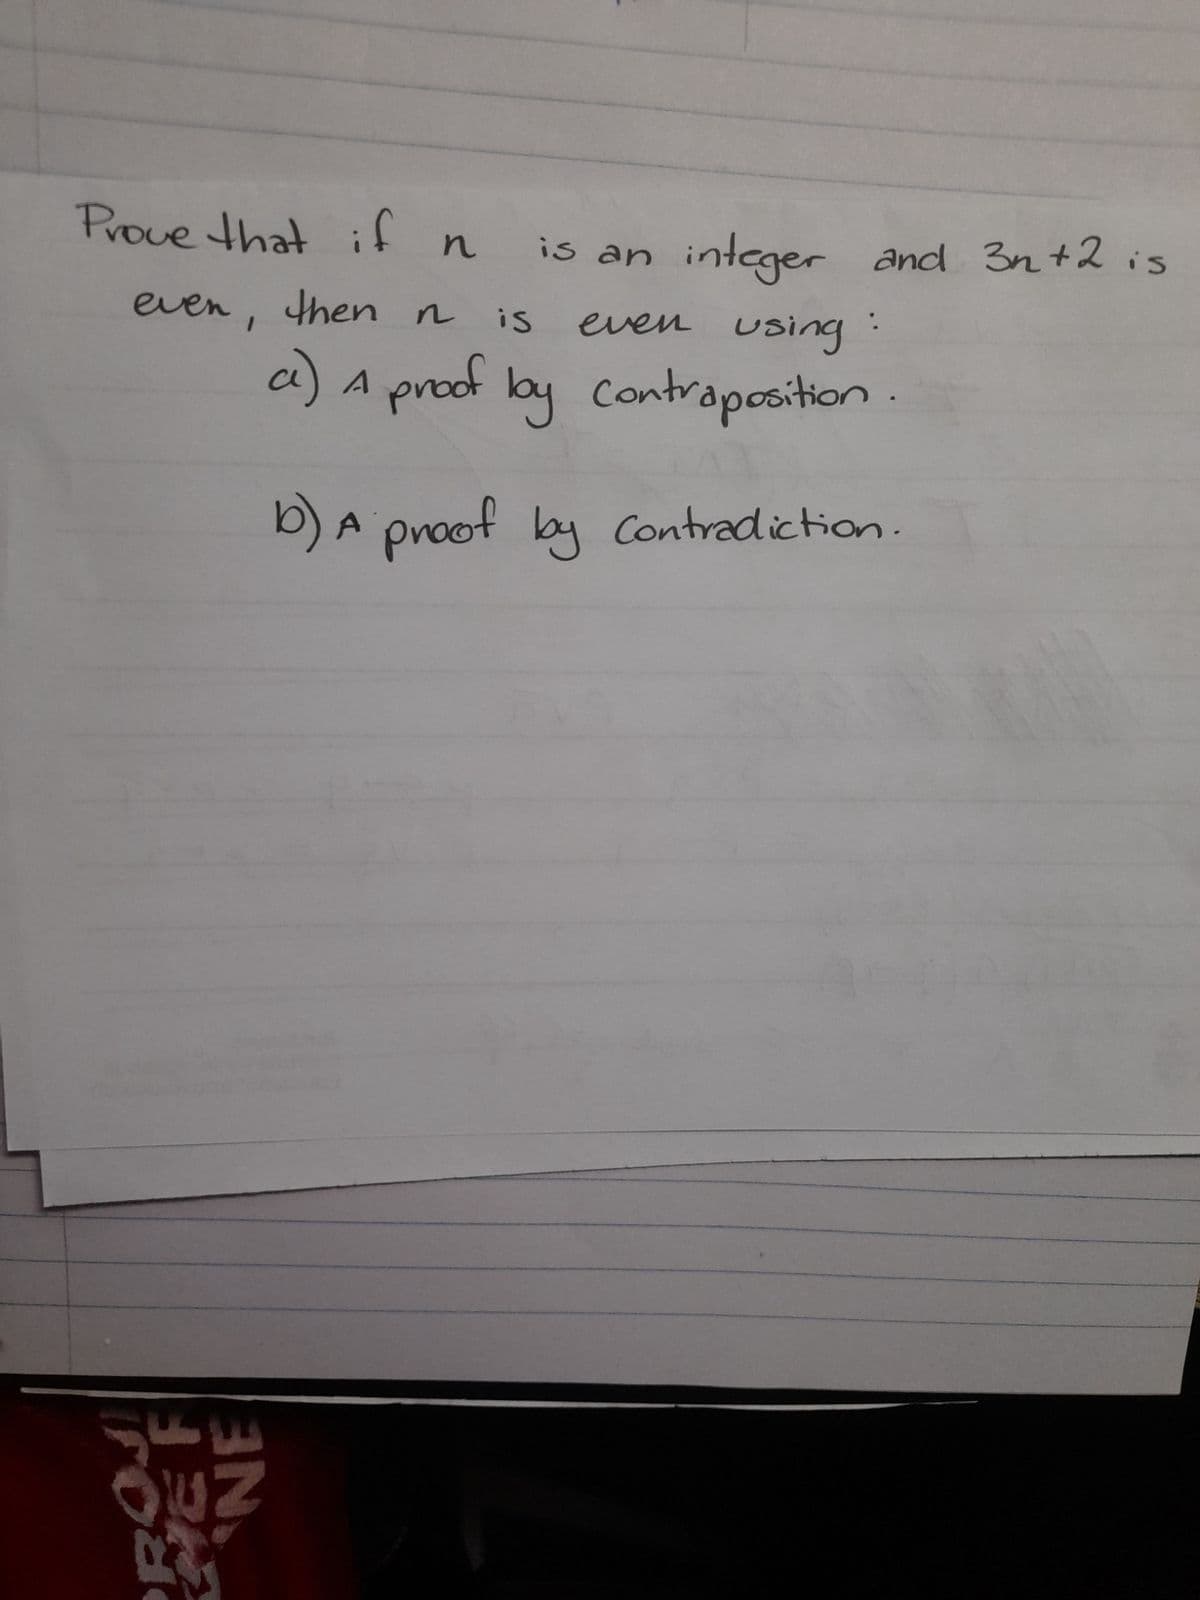 Prove that if n is an integer and 3n+2 is
even, then n is even using:
a) A proof by contraposition.
b) A proof by contradiction.